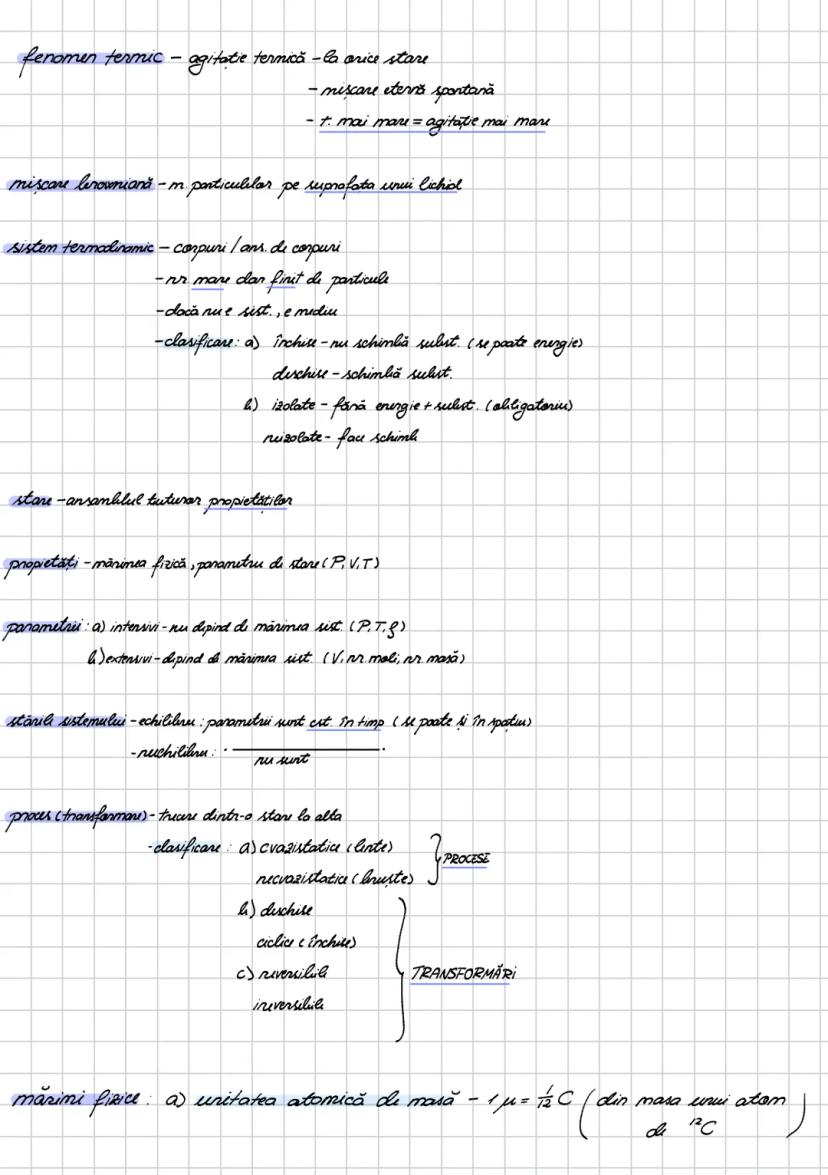 fenomen termic – agitație termică – la orice stare
– mișcare eternă spontană
– t. mai mare = agitație mai mare
mișcare browniană – m. particulelor pe suprafata unui lichid
sistem termodinamic – corpuri / ans. de corpuri
– nr. mare dar finit de particule
– dacă nu e sist., e mediu
– clasificare: a) închise – nu schimbă subst. (se poate energie)
deschise – schimbă subst.
b) izolate – fără energie + subst. (obligatoriu)
neizolate – fac schimb
stare – ansamblul tuturor propietăților
propietăți – mărimea fizică, parametru de stare (P, V, T)
parametrii: a) intensivi – nu depind de mărimea sist. (P, T, ρ)
b) extensivi – depind de mărimea sist. (V, nr. moli, nr. masă)
stările sistemului – echilibru: parametrii sunt cst. în timp (se poate și în spațiu)
– neechilibru:
nu sunt
proces (transformare) – trecere dintr-o stare la alta
– clasificare: a) cvazistatice (lente)
necvazistatice (bruște)
PROCESE
b) deschise
ciclice (închise)
c) reversibile
TRANSFORMĂRI
ireversibile
mărimi fizice: a) unitatea atomică de masă – 1 μ = 1/12 C (din masa unui atom
de ¹²C)